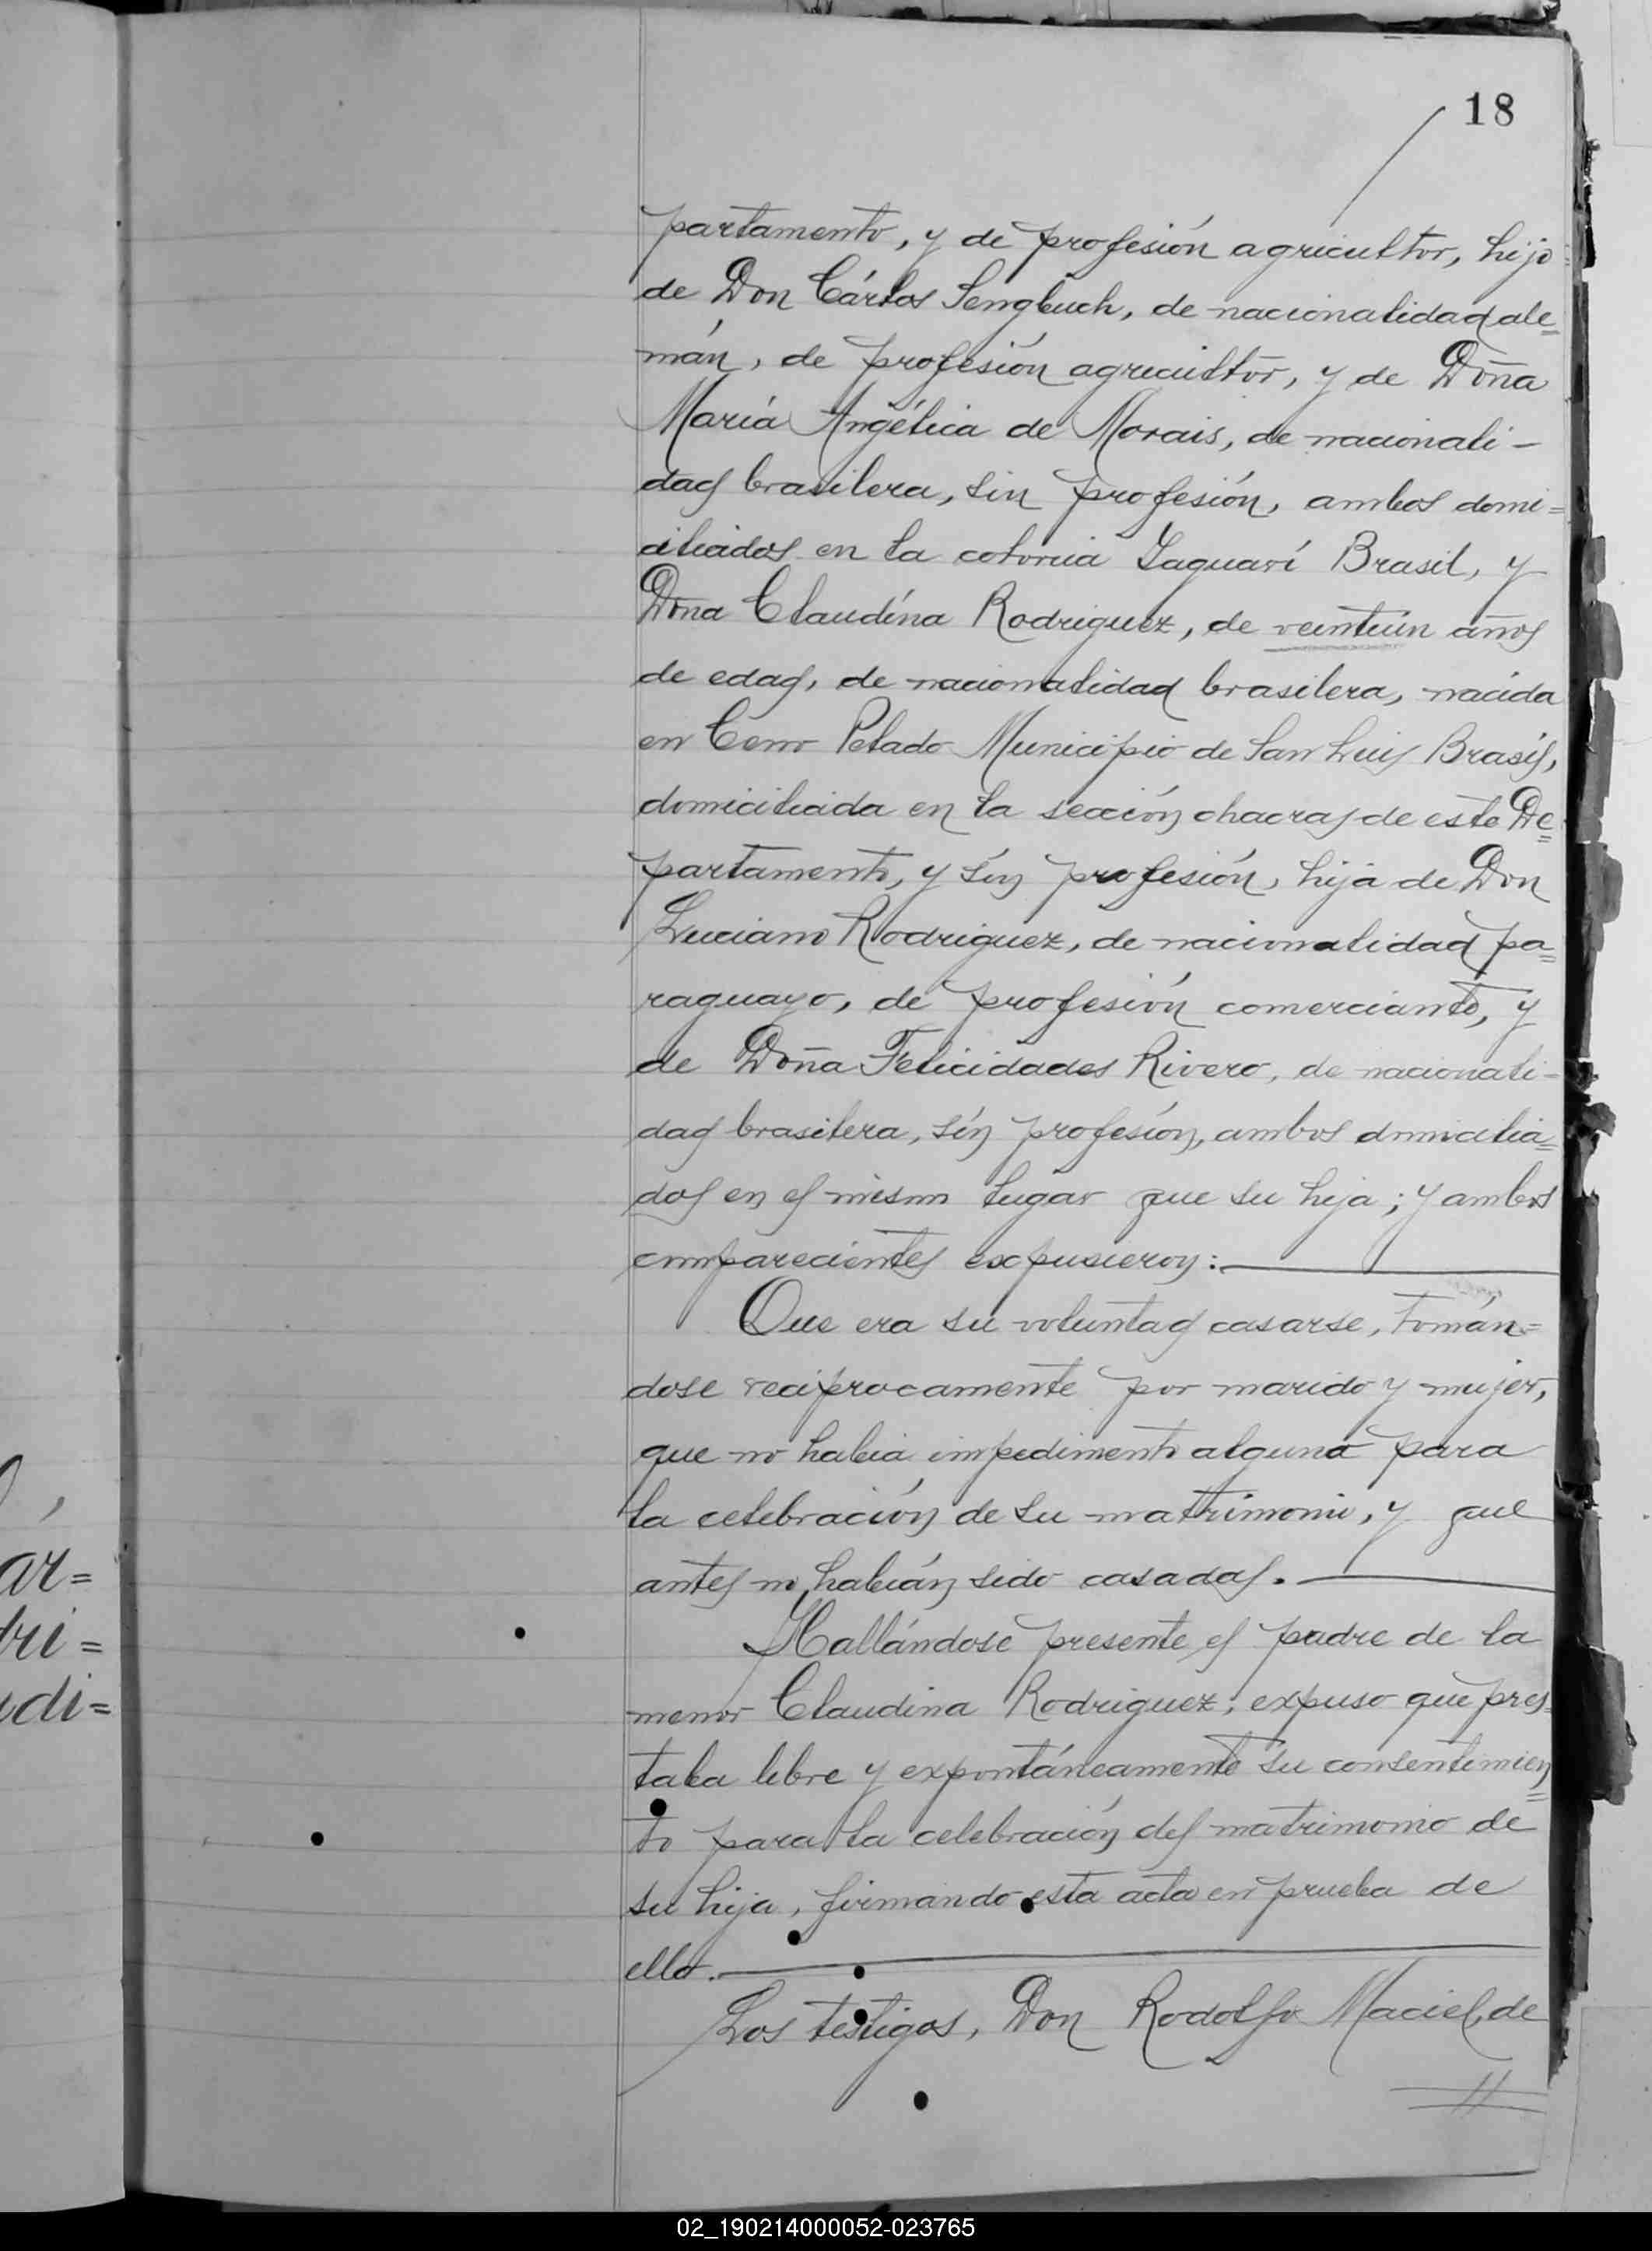 18
partamento, y de profesión agricultor, hijo
de Don Cárlos Sengbuch, de nacionalidad ale=
mán, de profesión agricultor, y de Doña
María Angélica de Morais, de nacionali-
dad brasilera, sin profesión, ambos domi=
ciliados en la colonia Jaguarí Brasil, y
Doña Claudína Rodriguez, de veintiún años
de edad, de nacionalidad brasilera, nacida
en Cerro Pelado Municipio de San Luis Brasil,
domiciliada en la sección chacras de este De=
partamento, y sin profesión, hija de Don
Luciano Rodriguez, de nacionalidad pa=
raguayo, de profesión comerciante, y
de Doña Felicidades Rivero, de nacionali-
dad brasilera, sin profesión, ambos domicilia=
dos en el mismo lugar que su hija; y ambos
comparecientes expusieron:
Que era su voluntad casarse, tomán=
dose reciprocamente por marido y mujer,
que no habia impedimento alguno para
la celebración de su matrimonio, y que
antes no habían sido casados.
Hallándose presente el padre de la
menor Claudina Rodriguez; expuso que pres
taba libre y expontáneamente su consentimien=
to para la celebración del matrimonio de
su hija, firmando esta acta en prueba de
ello.
Los testigos, Don Rodolfo Maciel, de
ar=
tri=
udi=
02_190214000052-023765